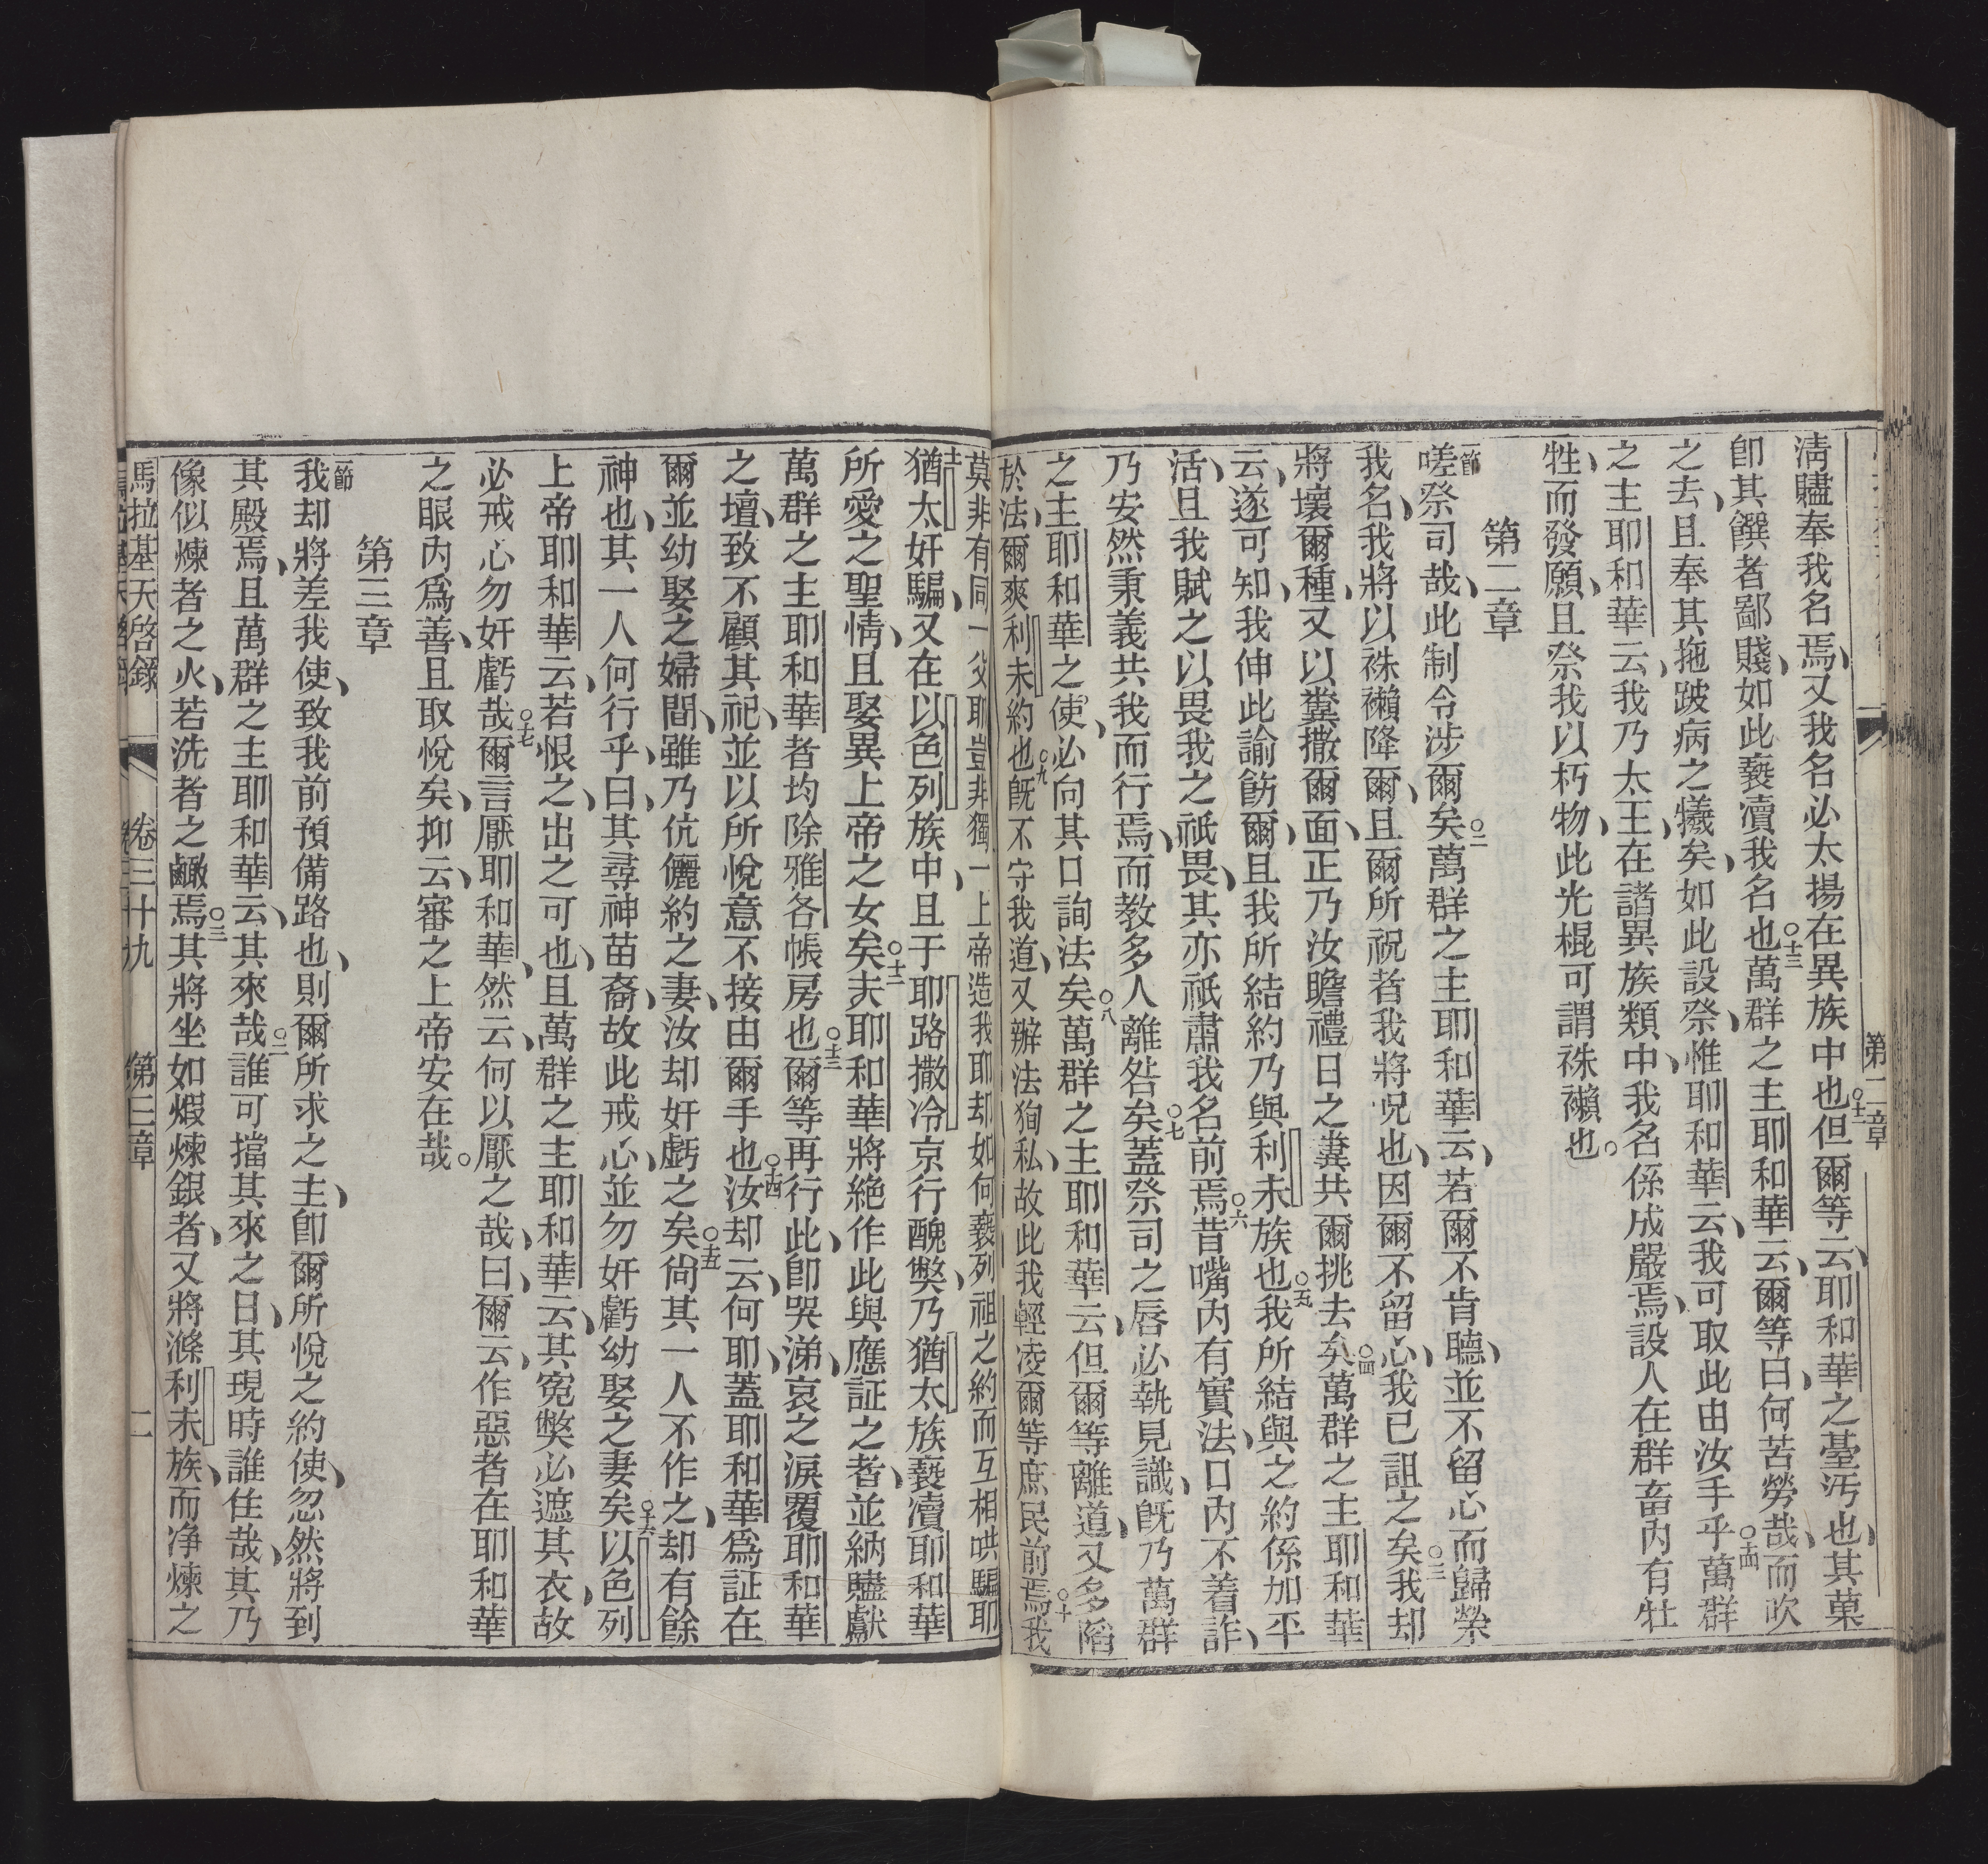 第二章
清贐奉我名焉又我名必太揚在異族中也○十二但爾等云耶和華之臺污也其菓
卽其饌者鄙賤如此褻瀆我名也○十三萬群之主耶和華云爾等曰何苦勞哉而吹
之去且奉其拖跛病之犧矣如此設祭惟耶和華云我可取此由汝手乎○十四萬群
之主耶和華云我乃太王在諸異族類中我名係成嚴焉設人在群畜內有牡
牲而發願且祭我以朽物此光棍可謂袾襰也○
第二章
一節嗟祭司哉此制令涉爾矣○二萬群之主耶和華云若爾不肯聽並不留心而歸榮
我名我將以袾襰降爾且爾所祝者我將呪也因爾不留心我已詛之矣○三我却
將壞爾種又以糞撒爾面正乃汝瞻禮日之糞共爾挑去矣○四萬群之主耶和華
云遂可知我伸此諭飭爾且我所結約乃與利未族也○五我所結與之約係加平
活且我賦之以畏我之祇畏其亦祇肅我名前焉○六昔嘴內有實法口內不着詐
乃安然秉義共我而行焉而教多人離咎矣○七蓋祭司之唇必執見識旣乃萬群
之主耶和華之使必向其口詢法矣○八萬群之主耶和華云但爾等離道又多陷
於法爾爽利未約也○九旣不守我道又辦法狥私故此我輕凌爾等庶民前焉○十我
莫非有同一父耶豈非獨一上帝造我耶却如何褻列祖之約而互相哄騙耶
十一猶太奸騙又在以色列族中且于耶路撒冷京行醜獘乃猶太族褻瀆耶和華
所愛之聖情且娶異上帝之女矣○十二夫耶和華將絶作此與應証之者並納贐獻
萬群之主耶和華者均除雅各帳房也○十三爾等再行此卽哭涕哀之淚覆耶和華
之壇致不顧其祀並以所悅意不接由爾手也○十四汝却云何耶蓋耶和華爲証在
爾並幼娶之婦間雖乃伉儷約之妻汝却奸虧之矣○十五尙其一人不作之却有餘
神也其一人何行乎曰其尋神苗裔故此戒心並勿奸虧幼娶之妻矣○十六以色列
上帝耶和華云若恨之出之可也且萬群之主耶和華云其寃獘必遮其衣故
必戒心勿奸虧哉○十七爾言厭耶和華然云何以厭之哉曰爾云作惡者在耶和華
之眼內爲善且取悅矣抑云審之上帝安在哉○
第三章
一節我却將差我使致我前預備路也則爾所求之主卽爾所悅之約使忽然將到
其殿焉且萬群之主耶和華云其來哉○二誰可擋其來之日其現時誰住哉其乃
像似煉者之火若洗者之鹻焉○三其將坐如煆煉銀者又將滌利未族而净煉之
馬拉基天啓錄 卷三十九 第三章 二